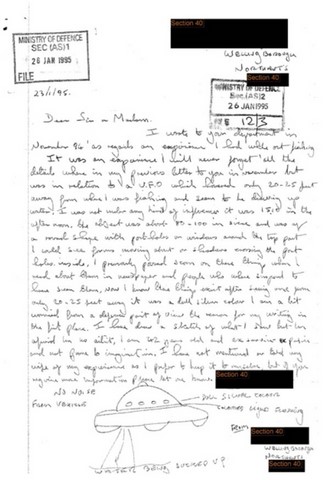 Section 40
MINISTRY OF DEFENCE
SEC (AS)1
26 JAN 1995
FILE
Wellingborough
Northants
MINISTRY OF DEFENCE
Sec.(AS)2
26 JAN 1995
FILE 12/3
23/1/95.
Dear Sir or Madam.
I wrote to your department in
November 94 as regards an experience I had whilst out fishing
It was an experience I will never forget all the
details where in my previous letter to you in november but
was in relation to a U.F.O which hovered only 20-25 feet
away from where I was fishing and seem to be drawing up
water. I was not under any kind of influence it was 15.10 in the
afternoon. the object was about 80-100 in size and was of
a round shape with portholes or windows around the top part
I could see forms moving about or shadows crossing the port-
holes inside, I previously poured scorn on these things when I
read about them in newspaper and people who where suppose to
have seen them, Now I know these things exist after seeing one from
only 20-25 feet away it was a dull silver colour I am a bit
worried from a defence point of view the reason for my writing in
the first place. I have drew a sketch of what I saw but
I am years old and
not prone to imagination, I have not mentioned or told my
wife of my experience as I prefer to keep it to myself, but if you
require more information please let me know.
Section 40
NO NOISE
FROM VEHICLE
DULL SILVER COLOUR
ORANGE LIGHT FLASHING
From
Section 40
Wellingborough
Northants
Section 40
WATER BEING SUCKED UP?